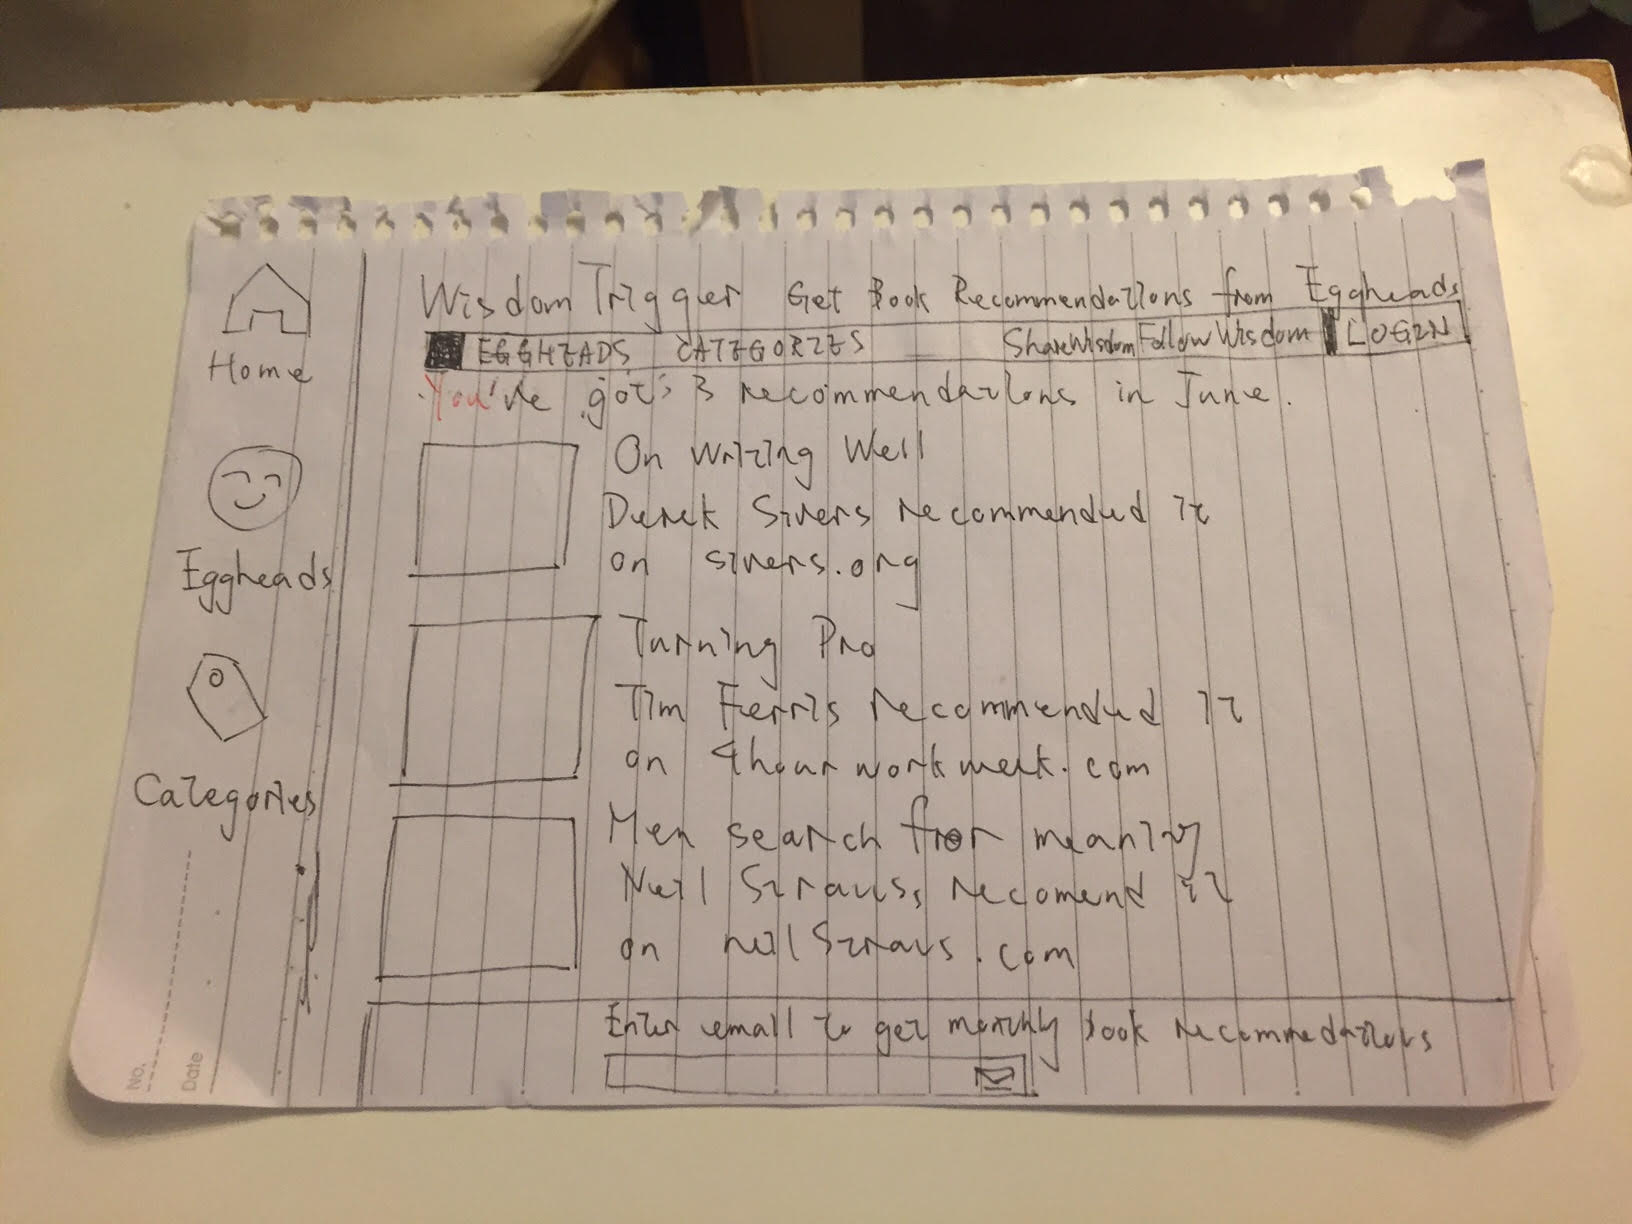 Wisdom Trigger Get Book Recommendations from Eggheads
EGGHEADS CATEGORIES ShareWisdom Follow Wisdom LOGIN
You've got 3 recommendations in June.
On Writing Well
Derek Sivers recommended it
on sivers.org
Turning Pro
Tim Ferris recommended it
on 4hourworkweek.com
Men search for meaning
Neil Strauss recomend it
on neilStraus.com
Enter email to get monthly book recommedations
Home
Eggheads
Categories
No.
Date